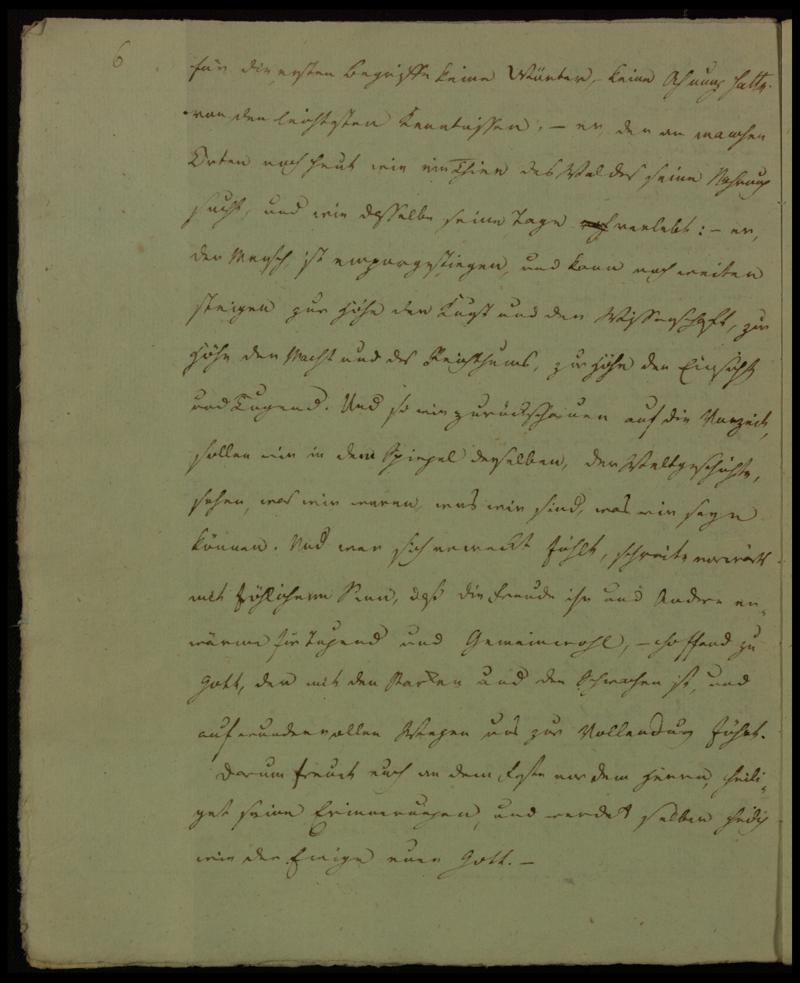 6
für die ersten Begriffe keine Wörter, keine Ahnung hatte
von den leichtesten Kenntnissen, – er der an manchen
Orten noch heut wie ein Thier des Waldes seine Nahrung
sucht, und wie dasselbe seine Tage verlebt: – er,
der Mensch ist emporgestiegen, und kann noch weiter
steigen zur Höhe der Kunst und der Wissenschaft, zur
Höhe der Macht und des Reichthums, zur Höhe der Einsicht
und Tugend. Und so wir zurückschauen auf die Vorzeit,
sollen wir in dem Spiegel derselben, der Weltgeschichte,
sehen, was wir waren, was wir sind, was wir seyn
können. Und wer sich erweckt fühlt, schreite vorwärts
mit fröhlichem Sinn, daß die Freude ihn und Andere er-
wärme für Tugend und Gemeinwohl, – hoffend zu
Gott, der mit den Starken und den Schwachen ist, und
auf wundervollen Wegen uns zur Vollendung führt.
Darum freuet euch an dem Feste vor dem Herrn, heili-
get seine Erinnerungen, und werdet selber heilig
wie der Ewige euer Gott. –